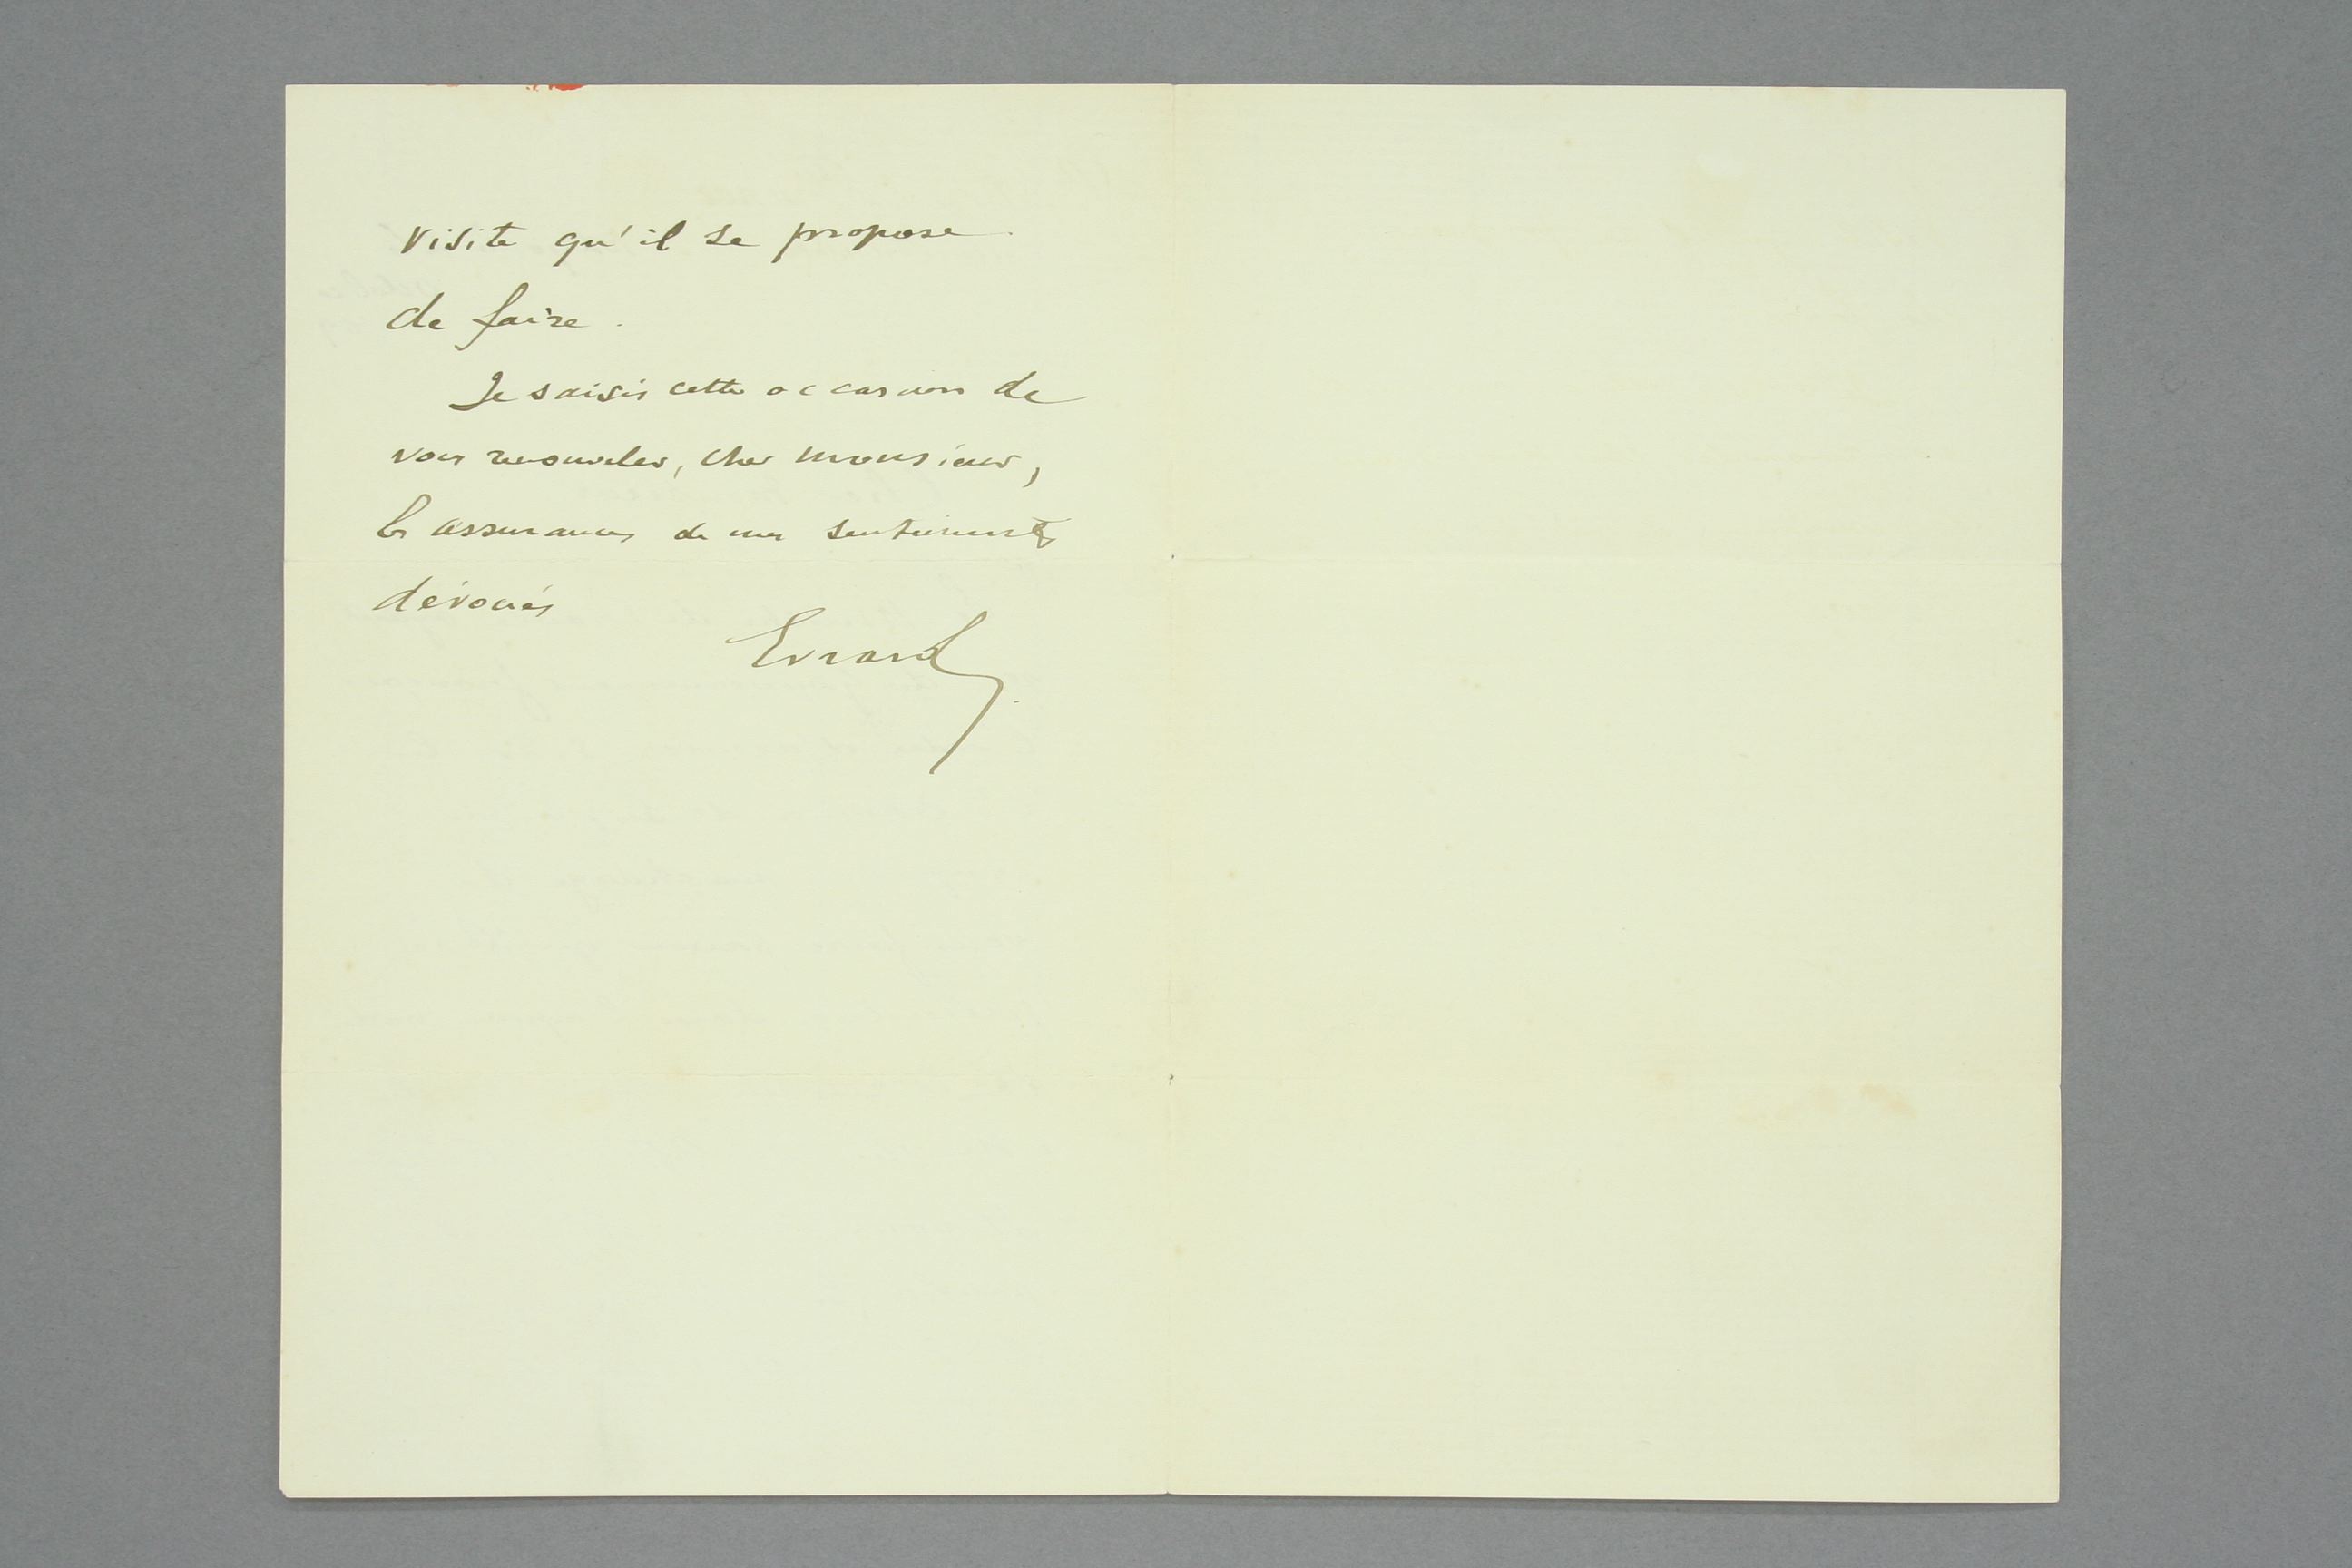 visite qu'il se propose
de faire.
Je saisis cette occasion de
vous renouveler, cher monsieur,
les assurances de mes sentiments
dévoués
Evrard